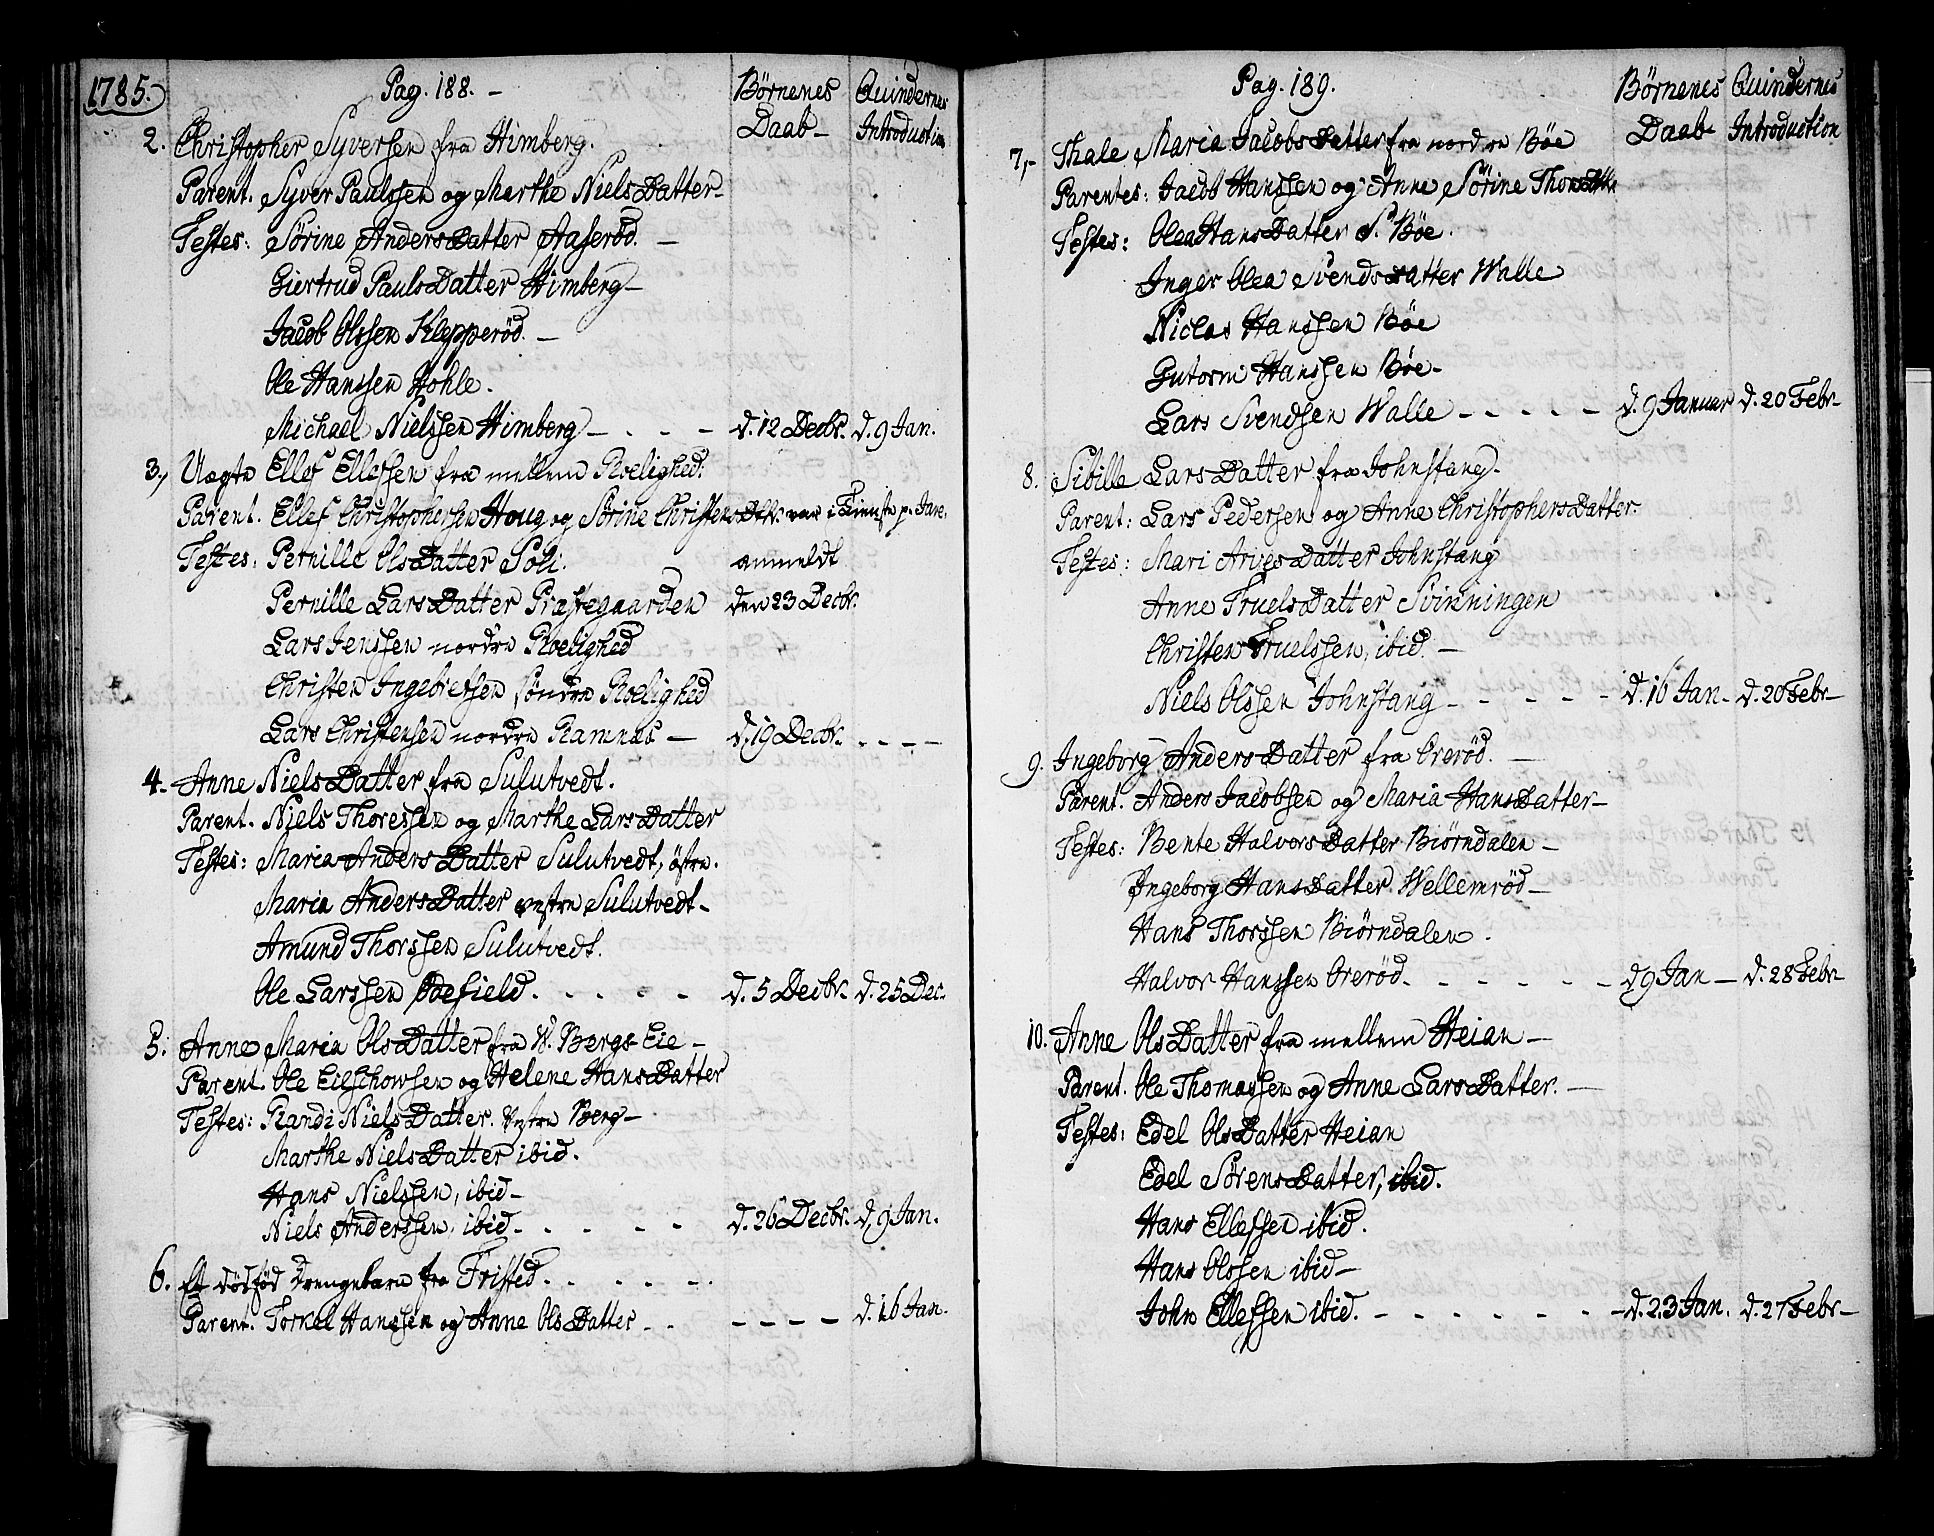 1785.
Pag. 188. -
Børnenes Daab -
Quindernes Introduction
2. Christopher Syversen fra Himberg.
Parent. Syver Paulssen og Marthe Niels Datter -
Testes: Sørine Anders Datter Aaserød. -
Giertrud Pauls Datter Himberg -
Jacob Olssen Klepperød. -
Ole Hanssen Hohle.
Michael Nielssen Himberg - . - - d. 12 Decbr. d. 9 Jan.
3, Uægte Ellef Ellefsen fra mellem Roelighed:
Parent. Ellef Christophersen Houg og Sørine Christens Dttr. var i Tieneste p. Jare,
Testes: Pernille Ols Datter Soli. anmeldt
Pernille Lars Datter Præstegaarden den 23 Decbr.
Lars Jenssen nordre Roelighed
Christen Ingebretsen søndre Roelighed
Lars Christensen nordre Ramnæs - d. 19 Decbr. - - - -
4. Anne Niels Datter fra Sulutvedt.
Parent. Niels Thoressen og Marthe Lars Datter
Testes: Maria Anders Datter Sulutvedt, östre.
Maria Anders Datter vestre Sulutvedt -
Amund Thorssen Sulutvedt.
Ole Larssen Ødefield. . . - - d. 5 Decbr. d. 25 Dec.
5. Anne Maria Ols Datter fra W. Bergs Eie -
Parent. Ole Eilschowsen og Helene Hans Datter
Testes: Randi Niels Datter. Vestre Berg -
Marthe Niels Datter ibid.
Hans Nielssen, ibid -
Niels Anderssen, ibid - . - - - d. 26 Decbr. d. 9 Jan.
6. Et dödfød drengebarn fra Fristed. . . . . .
Parent. Torkel Hanssen og Anne Ols Datter - . - - - - d. 16 Jan.
Pag. 189.
Børnenes Daab -
Quindernes Introduction
7, - Thale Maria Jacobs Datter fra nordre Bøe
Parentes: Jacob Hanssen og Anne Sörine Thors Dttr
Testes: Olea Hans Datter S. Bøe.
Inger Olea Svends Datter Walle
Niclas Hanssen Bøe
Gutorm Hanssen Bøe -
Lars Svendsen Walle - - - - - d. 9 Januar d. 20 Febr -
8. Sibille Lars Datter fra Johnstang.
Parent: Lars Pedersen og Anne Christophers Datter.
Testes: Mari Arves Datter Johnstang
Anne Truels Datter Svinningen
Christen Truelssen, ibid. -
Niels Olssen Johnstang - - - - - d. 16 Jan - d. 20 Febr -
9. Ingeborg Anders Datter fra Orerød. -
Parent. Anders Jacobsen og Maria Hans Datter -
Testes: Bente Halvors Datter Biørndalen -
Ingeborg Hans Datter Wellemrød -
Hans Thorssen Biörndalen.
Halvor Hanssen Orerød. - - - - - d 9 Jan - d. 28 Febr -
10. Anne Ols Datter fra mellem Heian -
Parent. Ole Thomassen og Anne Lars Datter. -
Testes: Edel Ols Datter Heian
Edel Sörens Datter, ibid.
Hans Ellefsen ibid.
Hans Olssen ibid -
John Ellefsen ibid. - - - - - - - d. 23 Jan. d. 27 Febr -